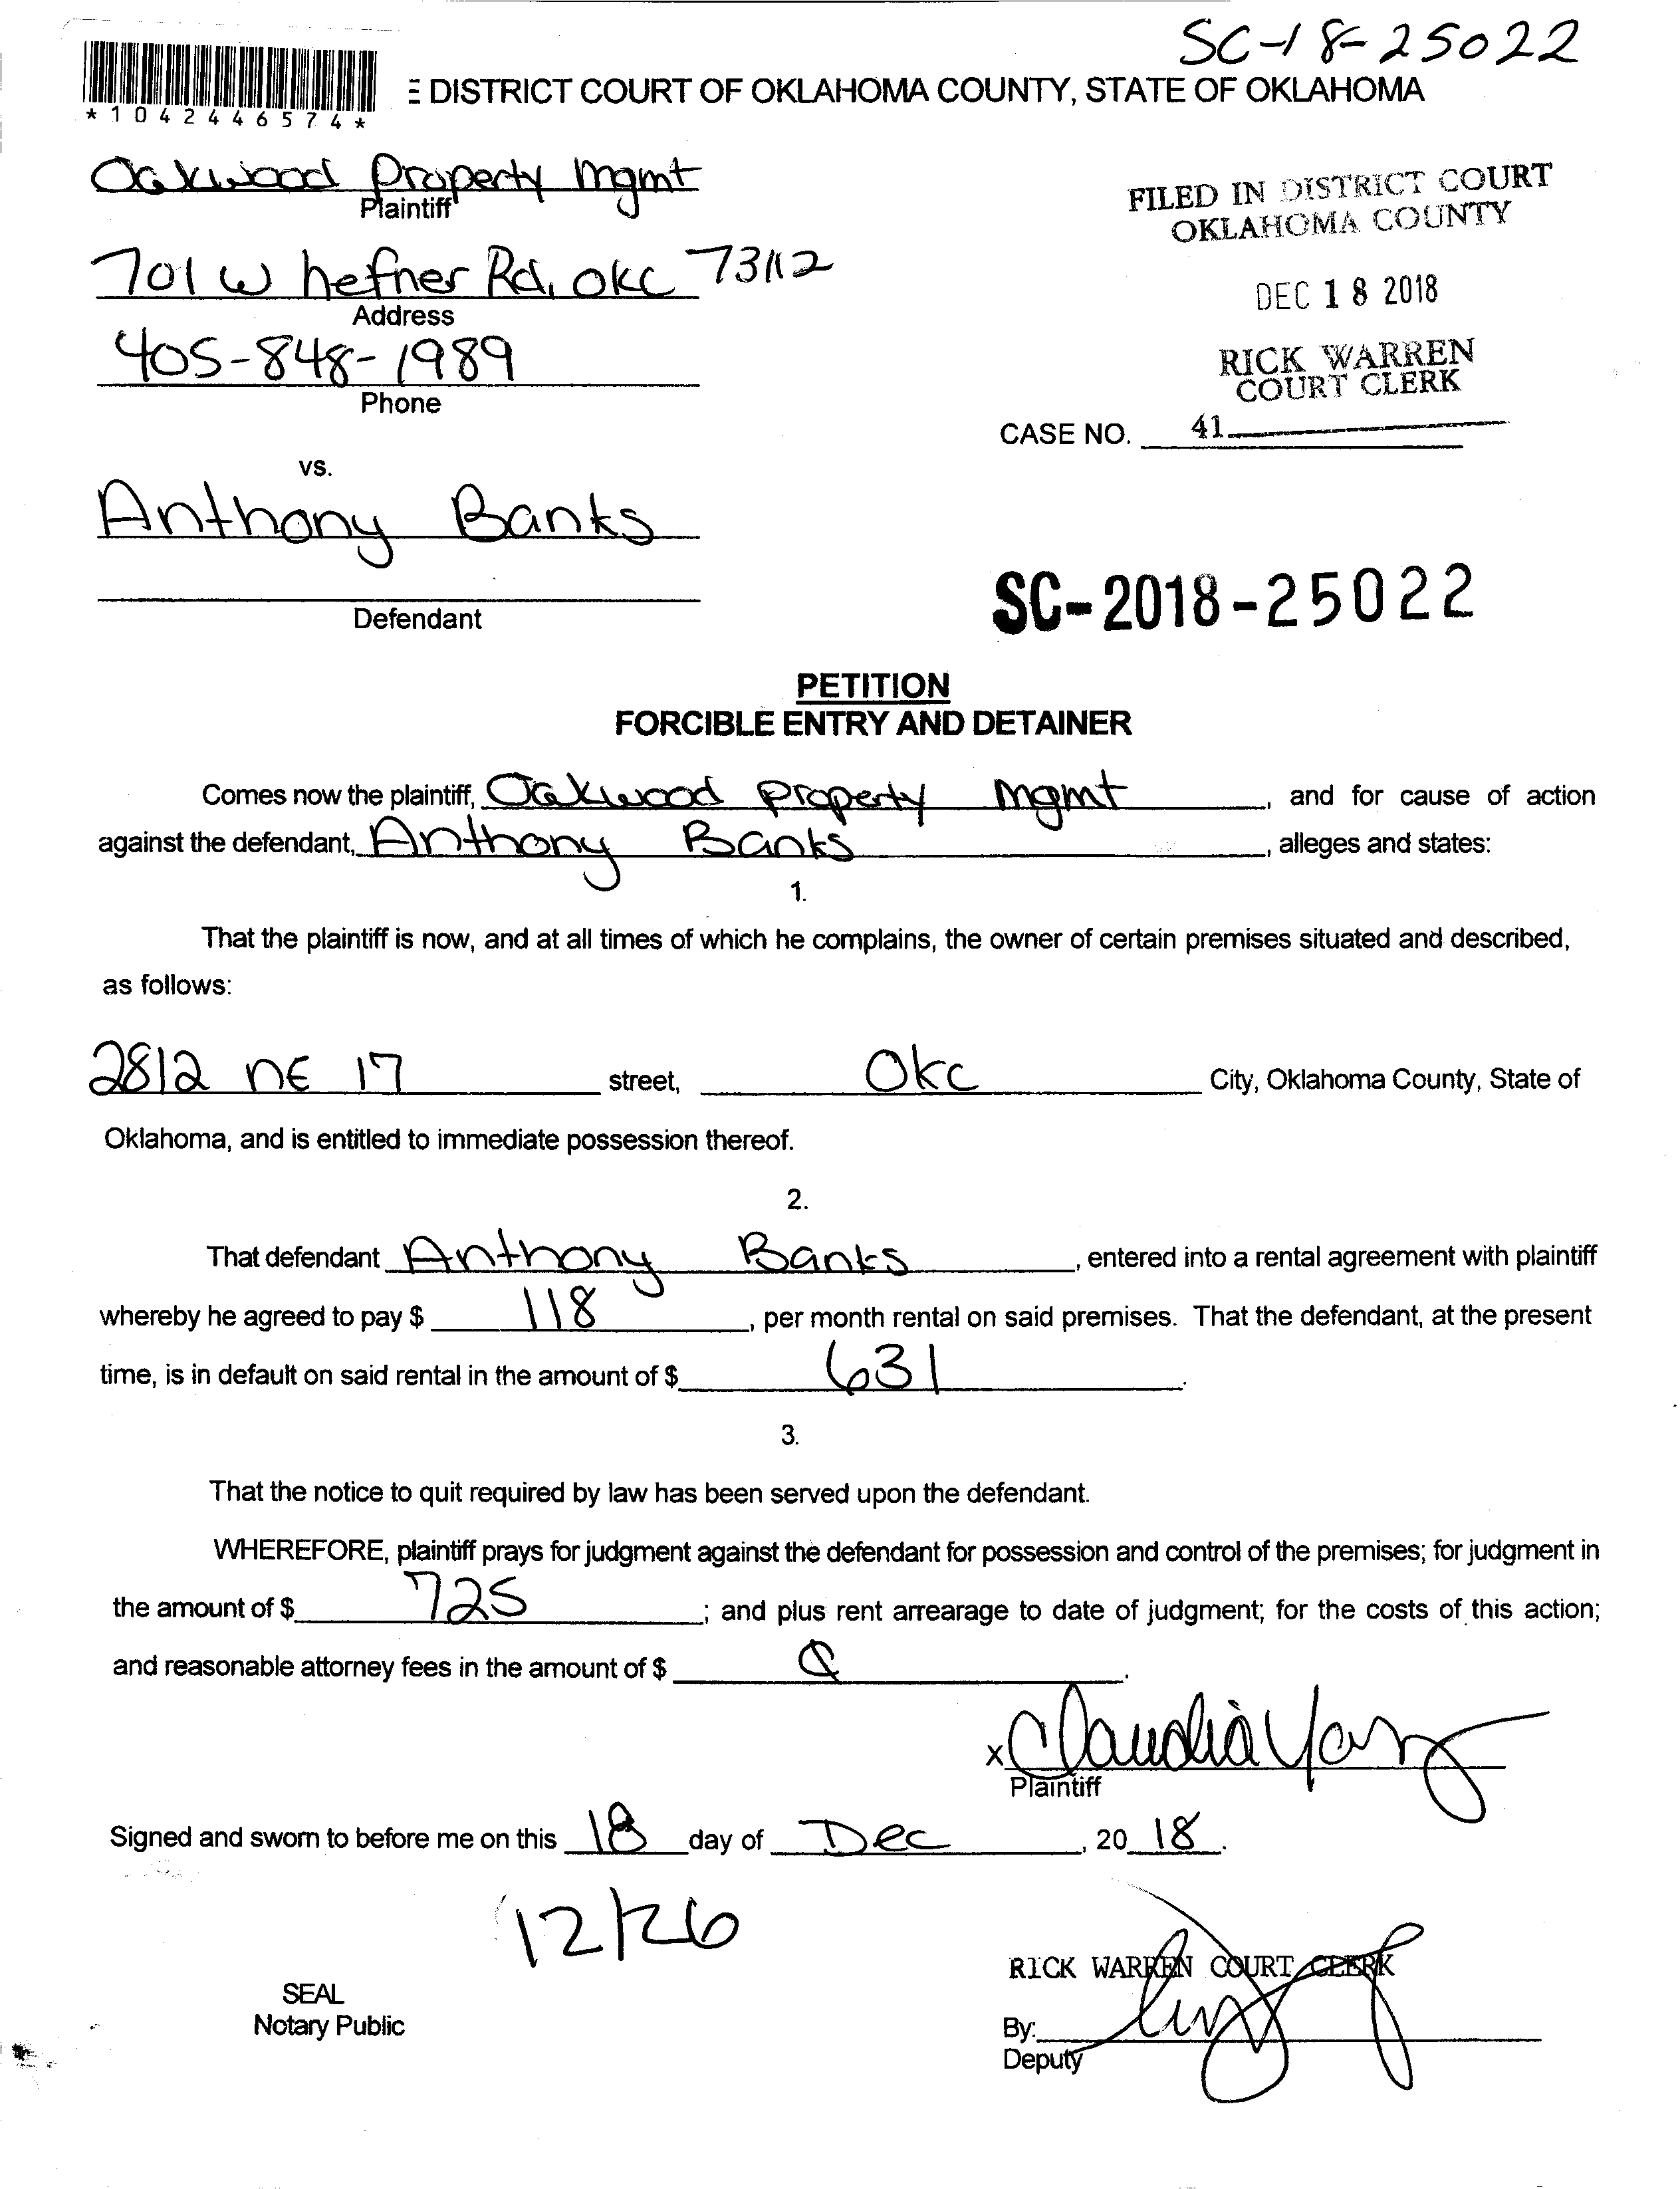 SC-18-25022
E DISTRICT COURT OF OKLAHOMA COUNTY, STATE OF OKLAHOMA
*1042446574*
Oakwood Property Mgmt
Plaintiff
701 W hefner Rd, OKC 73112
Address
405-848-1989
Phone
FILED IN DISTRICT COURT
OKLAHOMA COUNTY
DEC 18 2018
RICK WARREN
COURT CLERK
CASE NO. 41
vs.
Anthony Banks
Defendant
SC-2018-25022
PETITION
FORCIBLE ENTRY AND DETAINER
Comes now the plaintiff, Oakwood property Mgmt, and for cause of action
against the defendant, Anthony Banks, alleges and states:
1.
That the plaintiff is now, and at all times of which he complains, the owner of certain premises situated and described,
as follows:
2812 NE 17 street, OKC City, Oklahoma County, State of
Oklahoma, and is entitled to immediate possession thereof.
2.
That defendant Anthony Banks, entered into a rental agreement with plaintiff
whereby he agreed to pay $ 118, per month rental on said premises. That the defendant, at the present
time, is in default on said rental in the amount of $ 631.
3.
That the notice to quit required by law has been served upon the defendant.
WHEREFORE, plaintiff prays for judgment against the defendant for possession and control of the premises; for judgment in
the amount of $ 725; and plus rent arrearage to date of judgment; for the costs of this action;
and reasonable attorney fees in the amount of $ .
x Claudia
Plaintiff
Signed and sworn to before me on this 18 day of Dec, 20 18.
12/26
SEAL
Notary Public
RICK WARREN COURT CLERK
By:
Deputy